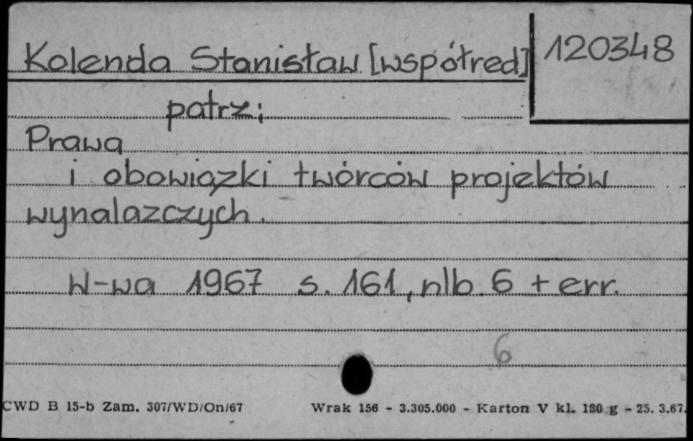 Kolenda Stanisław [współred] 120348
patrz:
Prawa
i obowiązki twórców projektów
wynalazczych.
W-wa 1967 s. 161, nlb. 6 + err.
6
CWD B 15-b Zam. 307/WD/On/67 Wrak 156 - 3.305.000 - Karton V kl. 180 g - 25. 3.67.